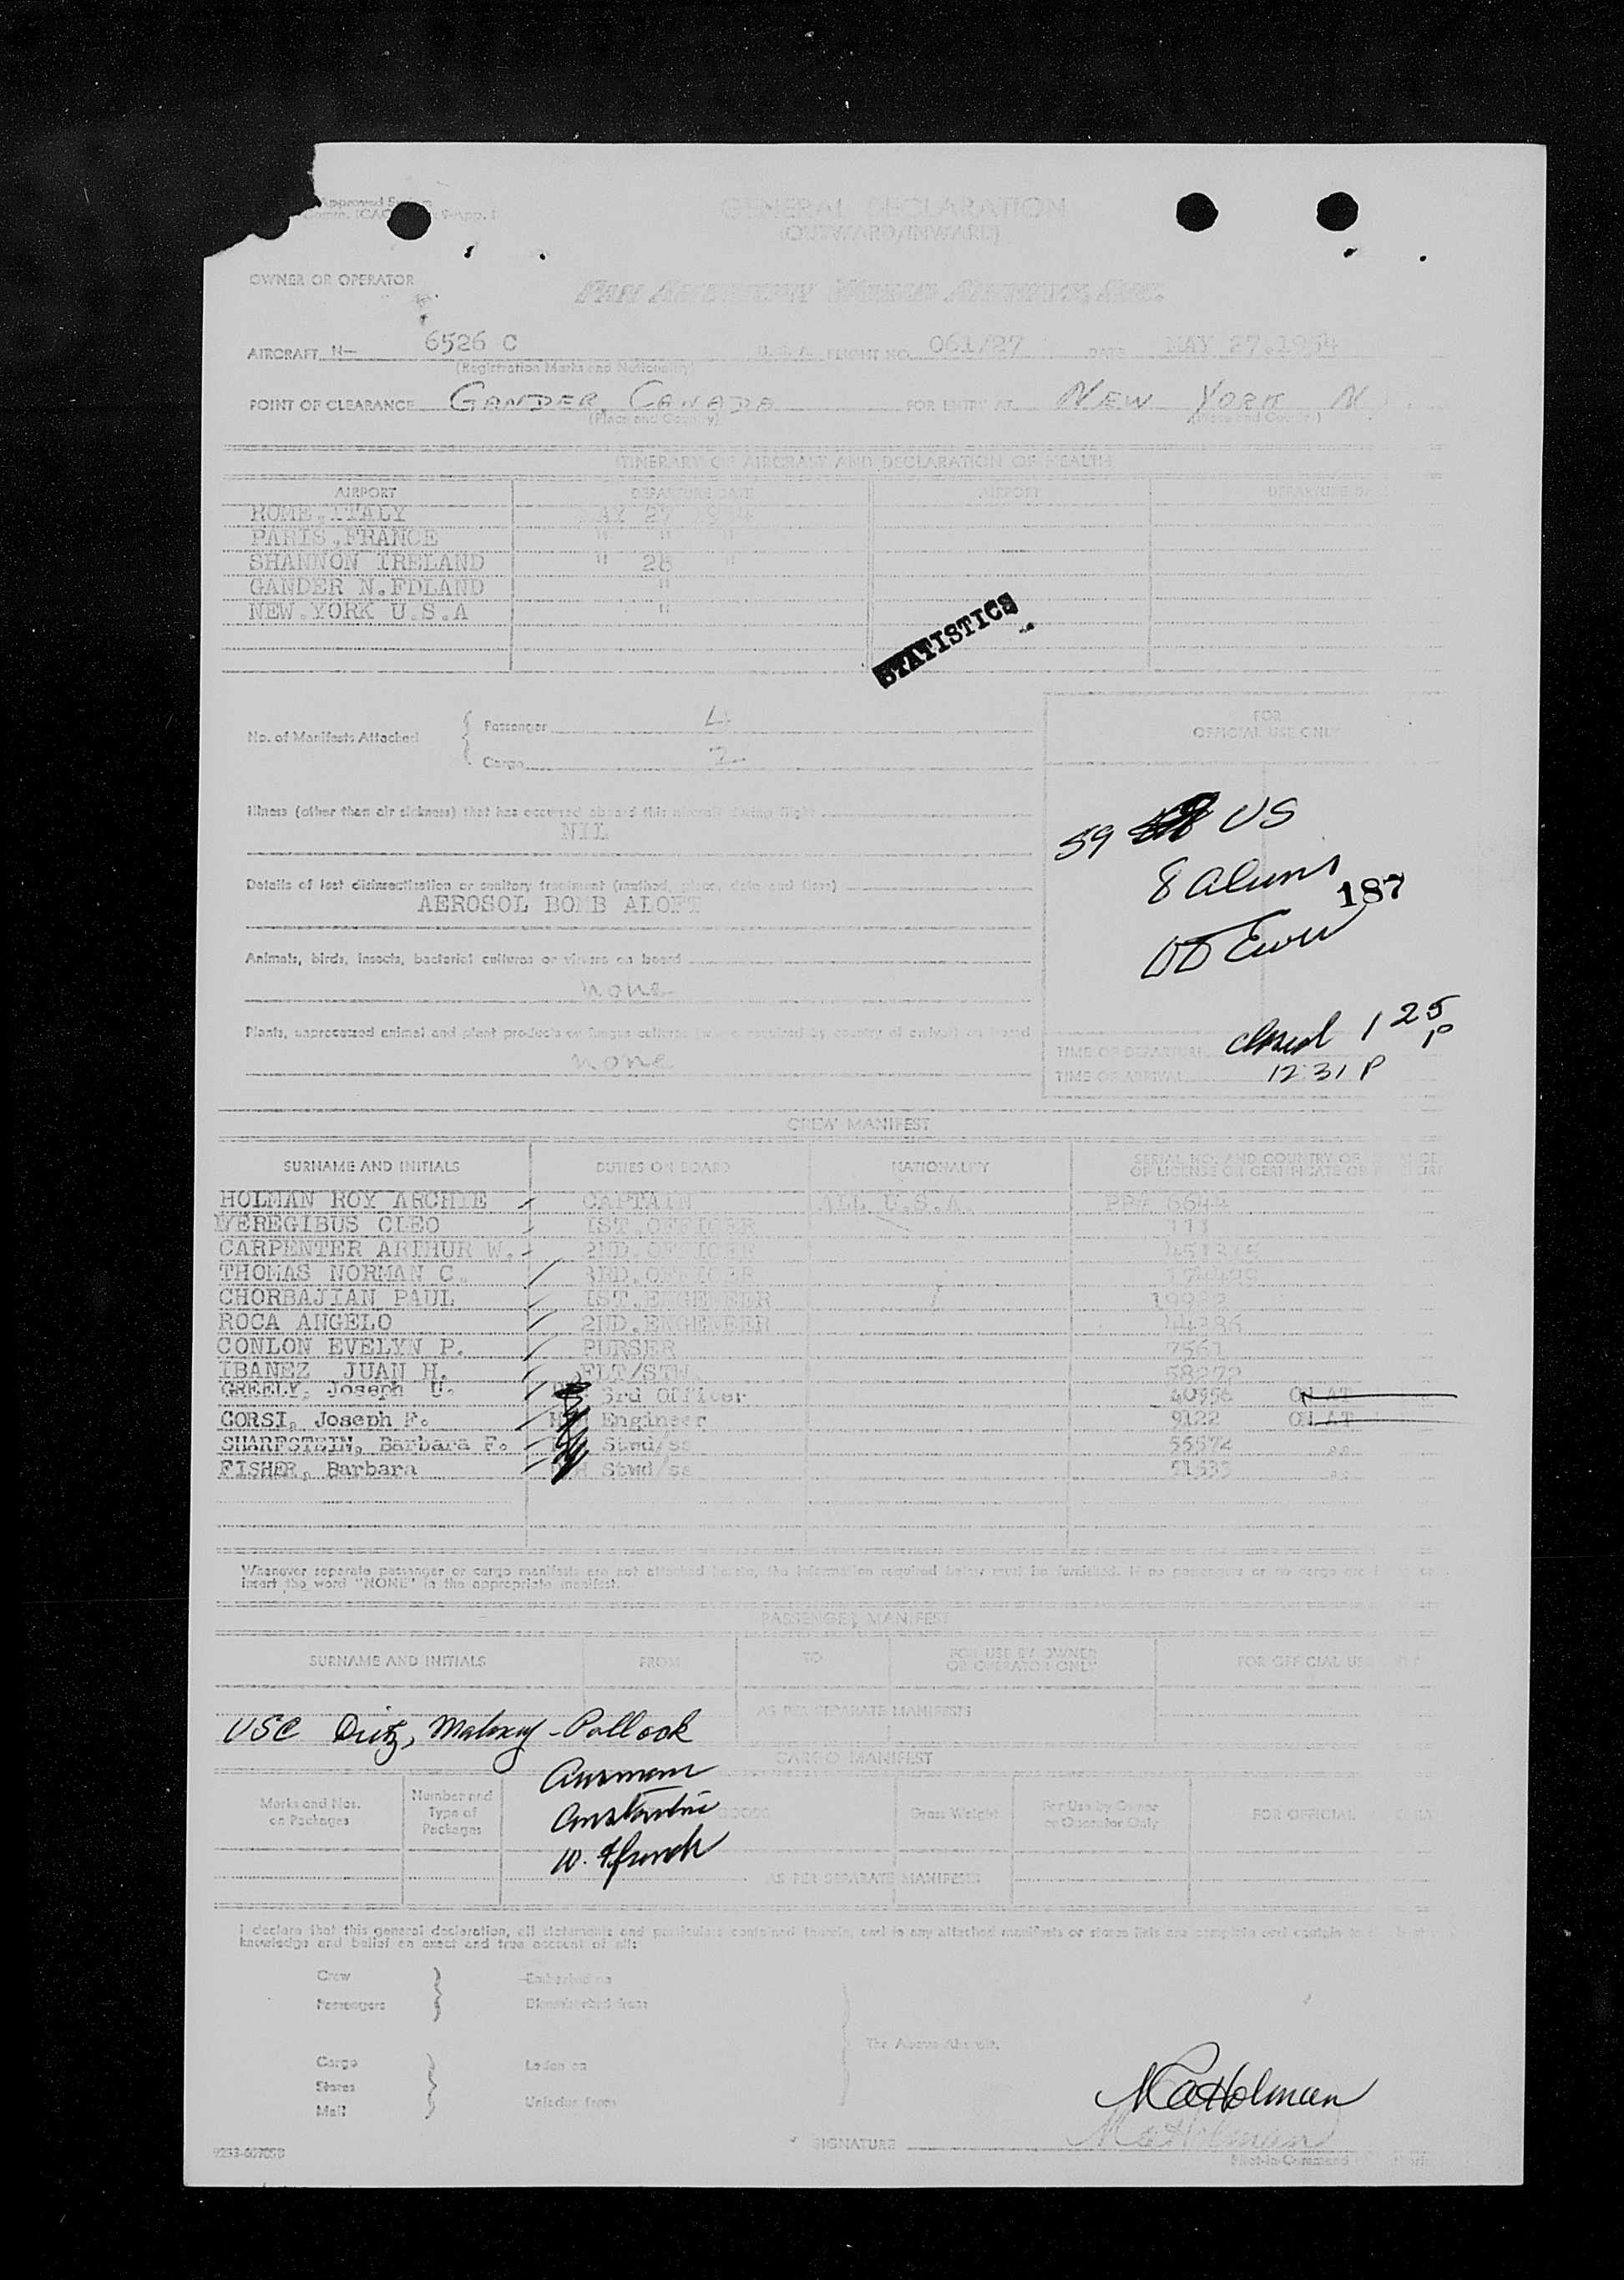 GENERAL DECLARATION
(OUTWARD/INWARD)
OWNER OR OPERATOR
PAN AMERICAN WORLD AIRWAYS, INC.
AIRCRAFT N— 6526 C U.S.A. FLIGHT NO. 061/27 DATE MAY 27.1954
(Registration Marks and Nationality)
POINT OF CLEARANCE GANDER, CANADA FOR ENTRY AT NEW YORK N
(Place and Country) (Place and Country)
ITINERARY OF AIRCRAFT AND DECLARATION OF HEALTH
AIRPORT DEPARTURE DATE AIRPORT DEPARTURE
ROME.ITALY MAY 27
PARIS.FRANCE " " "
SHANNON IRELAND " 28 "
GANDER N.FDLAND "
NEW.YORK U.S.A "
STATISTICS
No. of Manifests Attached
Passenger 4
Cargo 2
FOR
OFFICIAL USE ONLY
Illness (other than air sickness) that has occurred aboard this aircraft during flight
NIL
59 US
8 aliens
187
Details of last disinsectization or sanitary treatment (method, place, date and time)
AEROSOL BOMB ALOFT
Animals, birds, insects, bacterial cultures or viruses on board
none
Plants, unprocessed animal and plant products or fungus cultures
none
TIME OF DEPARTURE closed 1 25 P
TIME OF ARRIVAL 12:31 P
CREW MANIFEST
SURNAME AND INITIALS DUTIES ON BOARD NATIONALITY SERIAL NO. AND COUNTRY OF
OF LICENSE OR CERTIFICATE OR
HOLMAN ROY ARCHIE CAPTAIN ALL U.S.A. PP# 6644
VEREGIBUS CLEO 1ST.OFFICER
CARPENTER ARTHUR W. 2ND.OFFICER
THOMAS NORMAN C. 3RD.OFFICER
CHORBAJIAN PAUL 1ST.ENGENEER
ROCA ANGELO 2ND.ENGENEER 44386
CONLON EVELYN P. PURSER 7561
IBANEZ JUAN H. FLT/STW. 58272
GREELY, Joseph U. 3rd Officer 40956 ON AT
CORSI, Joseph F. Engineer 9122 ON AT
SHARFSTEIN, Barbara F. Stwd/ss 55572
FISHER, Barbara Stwd/ss 51633
Whenever separate passenger or cargo manifests are not attached hereto, the information required below must be furnished. If no passengers or no cargo are
insert the word "NONE" in the appropriate manifest.
PASSENGER MANIFEST
SURNAME AND INITIALS FROM TO FOR USE BY OWNER OR OPERATOR ONLY FOR OFFICIAL USE ONLY
AS PER SEPARATE MANIFESTS
USC Dietz, Maloney - Pollock
CARGO MANIFEST
Ausman
Constantine
W. French
Marks and Nos. on Packages Number and Type of Packages GOODS Gross Weight For Use by Owner or Operator Only FOR OFFICIAL
AS PER SEPARATE MANIFESTS
I declare that this general declaration, all statements and particulars contained therein, and in any attached manifests or stores lists are complete and contain to
knowledge and belief an exact and true account of all:
Crew Embarked on
Passengers Disembarked from
The Above Aircraft.
Cargo Laden on
Stores
Mail Unladen from
RAHolman
SIGNATURE RAHolman
Pilot-in-Command